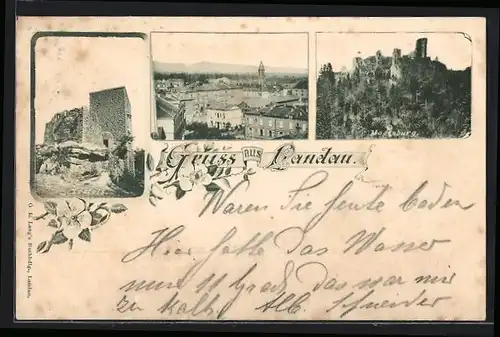 Madenburg.
Gruss aus Landau.
Waren Sie heute baden
Hier hatte das Wasser
nur 11 Grad, das war mir
zu kalt. Alb. Schneider
O. K. Lang's Buchhdlg., Landau.